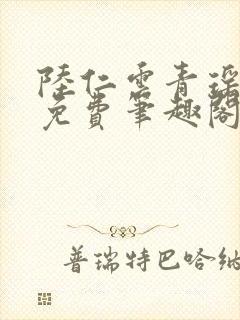 陸仁雲青瑤
免費筆趣閣
普瑞特巴哈納